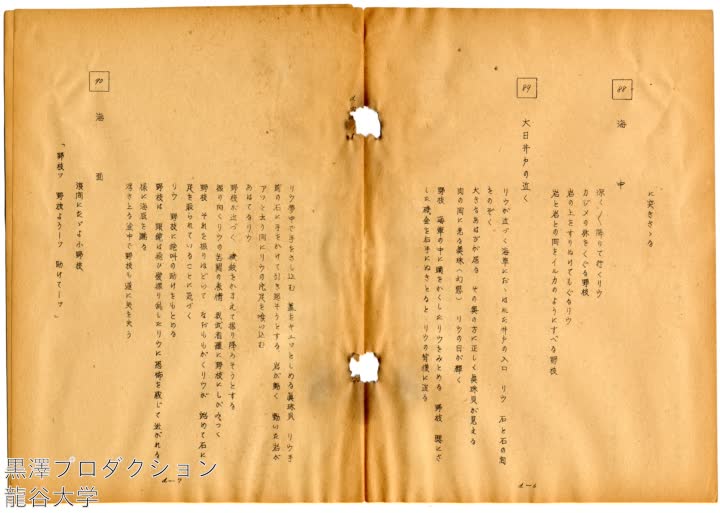 に突きさゝる
88
海中
深く〱降りて行くリウ
カジメの林をくぐる野枝
岩の上をすりぬけてもぐるリウ
岩と岩との間をイルカのようにすべる野枝
89
大日井戸の近く
リウが近づく海草におゝはれた井戸の入口 リウ 石と石の間
をのぞく
大きなあはびが居る その奥の方に正しく眞珠貝が見える
肉の間に光る眞珠(幻想) リウの目が輝く
野枝 海草の中に
した磯金を右手にぬきとると リウの背後に迫る
d-6
リウ夢中で手をさし込む 蓋をキュッとしめる眞珠貝 リウ手
前の石に手をかけて引き起そうとする 岩が動く 動いた岩が
アッと云う間にリウの片足を喰い込む
あはてるリウ
野枝が近づく 磯金をかまえて振り降ろそうとする
振り向くリウの苦悶の表情 我武者羅に野枝にしがみつく
野枝 それを振りほどいて なおももがくリウが 始めて石に
足を取られていることに気づく
リウ 野枝に絶叫の助けをもとめる
野枝は 眼鏡は飛び髪振り乱したリウに恐怖を感じて逃がれる
様に海底を蹴る
浮き上る途中で野枝も遂に気を失う
90
海面
波間にたゞよう小野枝
「野枝ッ 野枝ようーッ 助けてーッ」
d-7
黒澤プロダクション
龍谷大学